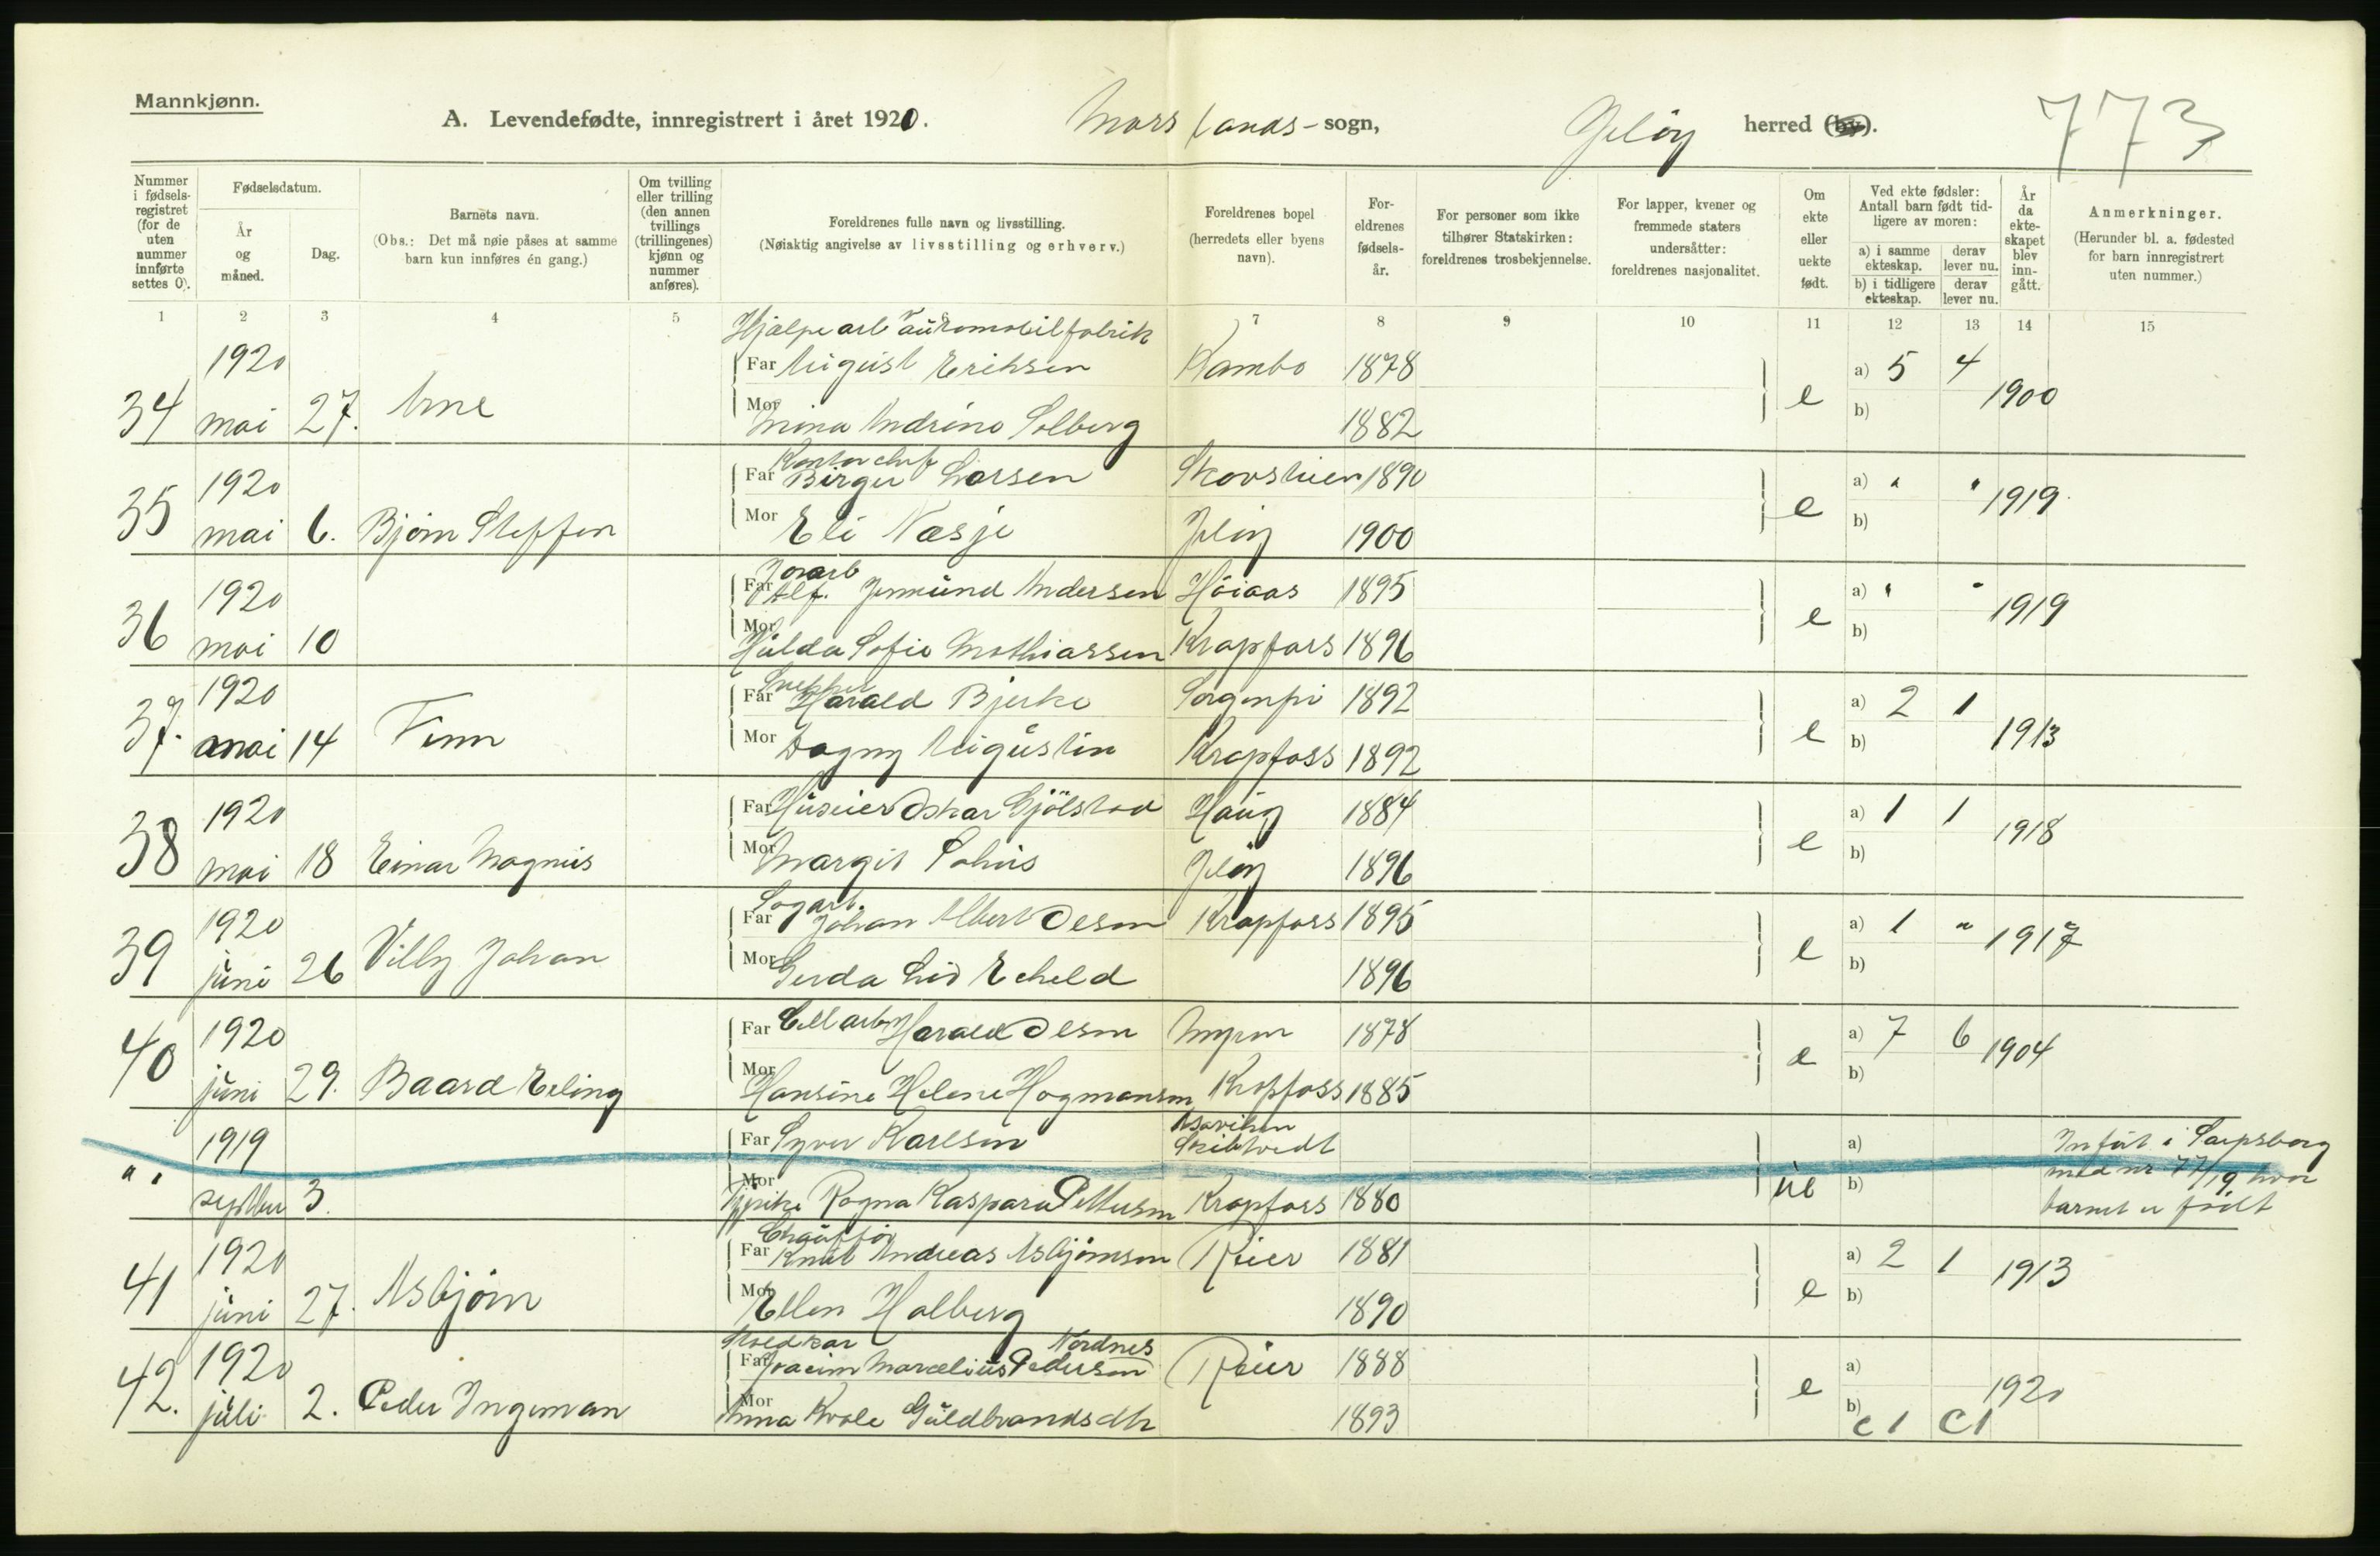 Mannkjønn.
A. Levendefødte, innregistrert i året 1920. Moss lands- sogn, Jeløy herred (by). 773
Nummer i fødselsregistret (for de uten nummer innførte settes 0).
Fødselsdatum.
År og måned.
Dag.
Barnets navn.
(Obs.: Det må nøie påses at samme barn kun innføres én gang.)
Om tvilling eller trilling (den annen tvillings (trillingenes) kjønn og nummer anføres).
Foreldrenes fulle navn og livsstilling.
(Nøiaktig angivelse av livsstilling og erhverv.)
Foreldrenes bopel (herredets eller byens navn).
Foreldrenes fødselsår.
For personer som ikke tilhører Statskirken: foreldrenes trosbekjennelse.
For lapper, kvener og fremmede staters undersåtter: foreldrenes nasjonalitet.
Om ekte eller uekte født.
Ved ekte fødsler: Antall barn født tidligere av moren:
a) i samme ekteskap. derav lever nu.
b) i tidligere ekteskap. derav lever nu.
År da ekteskapet blev inngått.
Anmerkninger.
(Herunder bl. a. fødested for barn innregistrert uten nummer.)
1 2 3 4 5 6 7 8 9 10 11 12 13 14 15
Hjælpearb v automobilfabrik
1920 Far August Eriksen Kambo 1878 a) 5 4
34 mai 27. Arne Mor Mina Andrine Solberg 1882 e b) 1900
Kontorchef
1920 Far Birger Larsen Skovstuen 1890 a) " "
35 mai 6. Bjørn Steffen Mor Eli Næsje Jeløy 1900 e b) 1919
Jovarb
1920 Far Alf. Jermund Andersen Høiaas 1895 a) " "
36 mai 10 Mor Hulda Sofie Mathiassen Krapfoss 1896 e b) 1919
Snekker
1920 Far Harald Bjerke Sorgenfri 1892 a) 2 1
37. mai 14 Finn Mor Dagny Augustin Krapfoss 1892 e b) 1913
1920 Far Huseier Oskar Gjølstad Haug 1884 a) 1 1
38 mai 18 Einar Magnus Mor Margit Sohus Jeløy 1896 e b) 1918
Sagarb.
1920 Far Johan Albert Olsen Krapfoss 1895 a) 1 "
39 juni 26 Villy Johan Mor Gerda Lid Echeld 1896 e b) 1917
1920 Far Cell arb Harald Olsen Myren 1878 a) 7 6
40 juni 29. Baard Erling Mor Hansine Helene Hagmansen Krapfoss 1885 e b) 1904
1919 Far Syver Karlsen Skibtvedt a) Indført i Sarpsborg
" " septbr 3. Mor Ragna Kaspara Pettersen Krapfoss 1880 ue b) med nr 77/19 hvor
barnet er født
Chauffør
1920 Far Knut Andreas Asbjørnsen Reier 1881 a) 2 1
41 juni 27. Asbjørn Mor Ellen Halberg 1890 e b) 1913
Nordnes
1920 Far Joacim Marcelius Pedersen Reier 1888 a)
42. juli 2. Peder Ingeman Mor Anna Kvale Guldbrandsdtr 1893 e b) c1 c1 1920